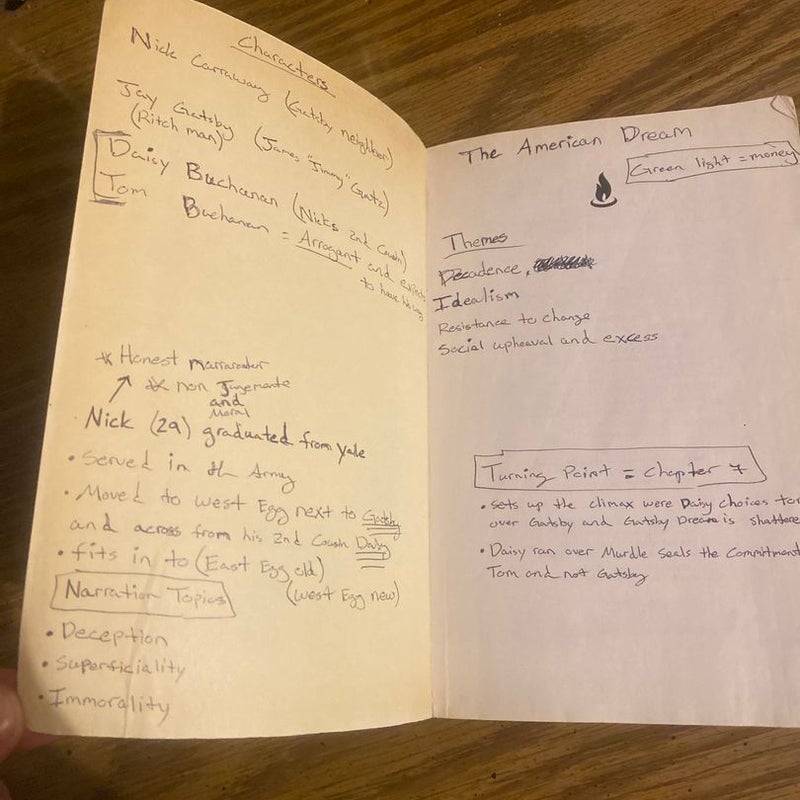 Characters
Nick Carraway (Gatsby neighbor)
Jay Gatsby (James "Jimmy" Gatz)
(Ritch man)
Daisy Buchanan (Nicks 2nd Cousin)
Tom Buchanan = Arrogant and expects
to have his way
* Honest narrarator
* non
and
Moral
Nick (29) graduated from Yale
• Served in th Army
• Moved to West Egg next to Gatsby
and across from his 2nd Cousin Daisy
• fits in to (East Egg old)
(West Egg new)
Narration Topics
• Deception
• Superficiality
• Immorality
The American Dream
Green light = money
Themes
Decadence,
Idealism
Resistance to change
Social upheaval and excess
Turning Point = Chapter 7
• Sets up the climax were Daisy choices Tom
over Gatsby and Gatsby Dream is shattered
• Daisy ran over Murdle seals the Commitment
Tom and not Gatsby